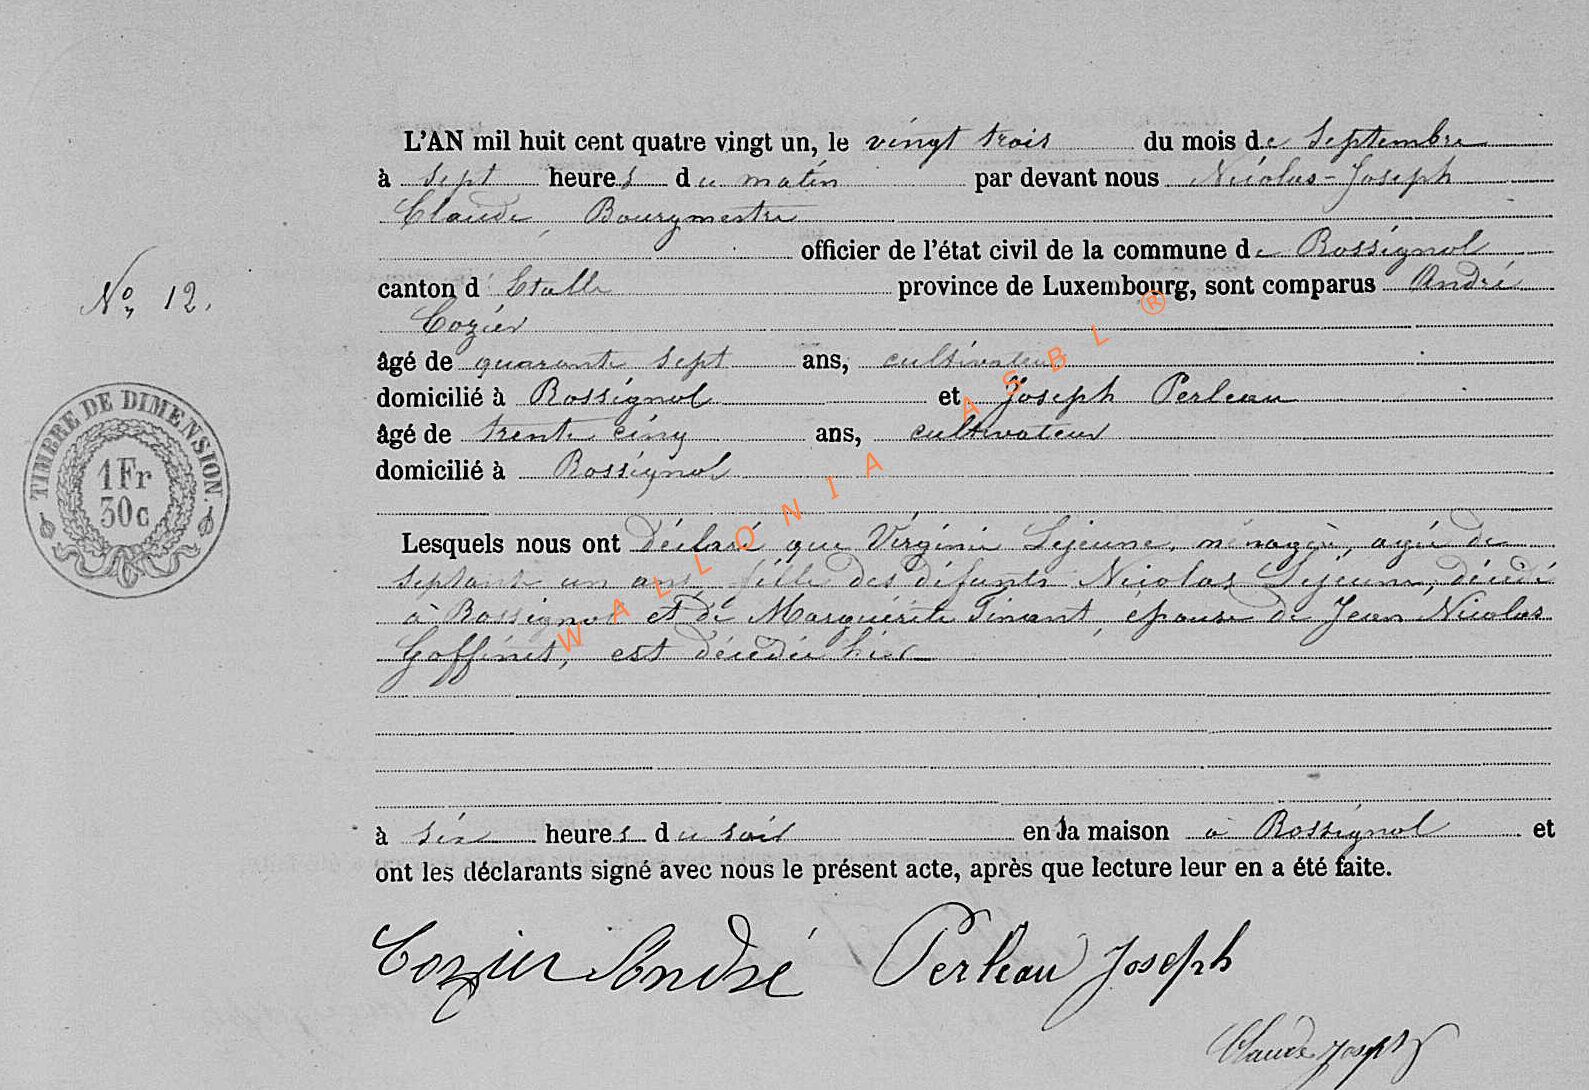 L'AN mil huit cent quatre vingt un, le vingt trois du mois de Septembre
à sept heures du matin par devant nous Nicolas-Joseph
Claude, Bourgmestre
officier de l'état civil de la commune de Rossignol
canton d'Etalle province de Luxembourg, sont comparus André
Cozier
âgé de quarante sept ans, cultivateur
domicilié à Rossignol et Joseph Perleau
âgé de trente cinq ans, cultivateur
domicilié à Rossignol
No, 12.
TIMBRE DE DIMENSION.
1Fr
30c
Lesquels nous ont déclaré que Virginie Lejeune, ménagère, agée de
septante un ans, fille des défunts Nicolas Lejeune, décédé
à Rossignol et de Marguérite Tinant, épouse de Jean Nicolas
Goffinet, est décédée hier
à six heures du soir en la maison à Rossignol et
ont les déclarants signé avec nous le présent acte, après que lecture leur en a été faite.
Cozier André Perleau Joseph
Claude Joseph
WALLONIA ASBL ®